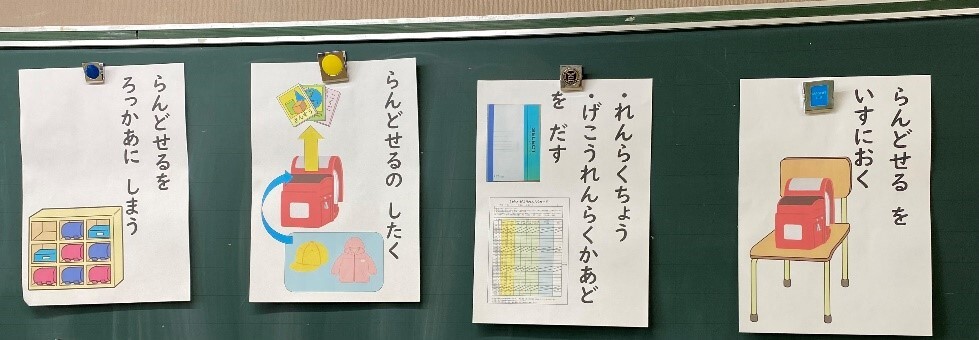 らんどせる を
いすにおく
・れんらくちょう
・げこうれんらくかあど
を だす
らんどせるの したく
らんどせるを
ろっかあに しまう